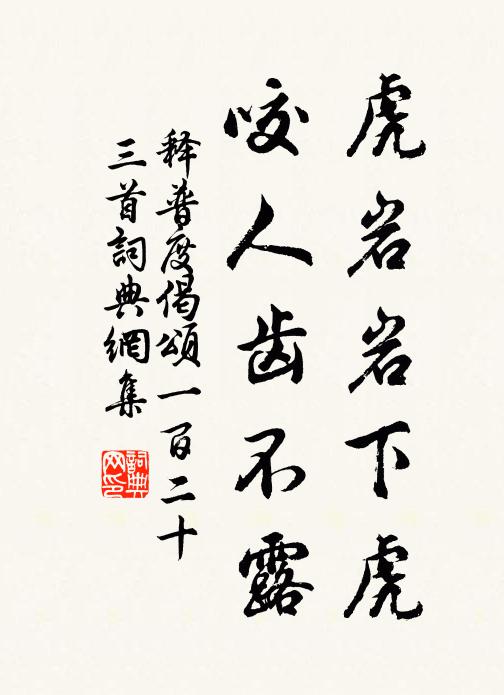 虎岩岩下虎
咬人齿不露
释普度偈頌一百二十
三首詞典網集
詞典
网印